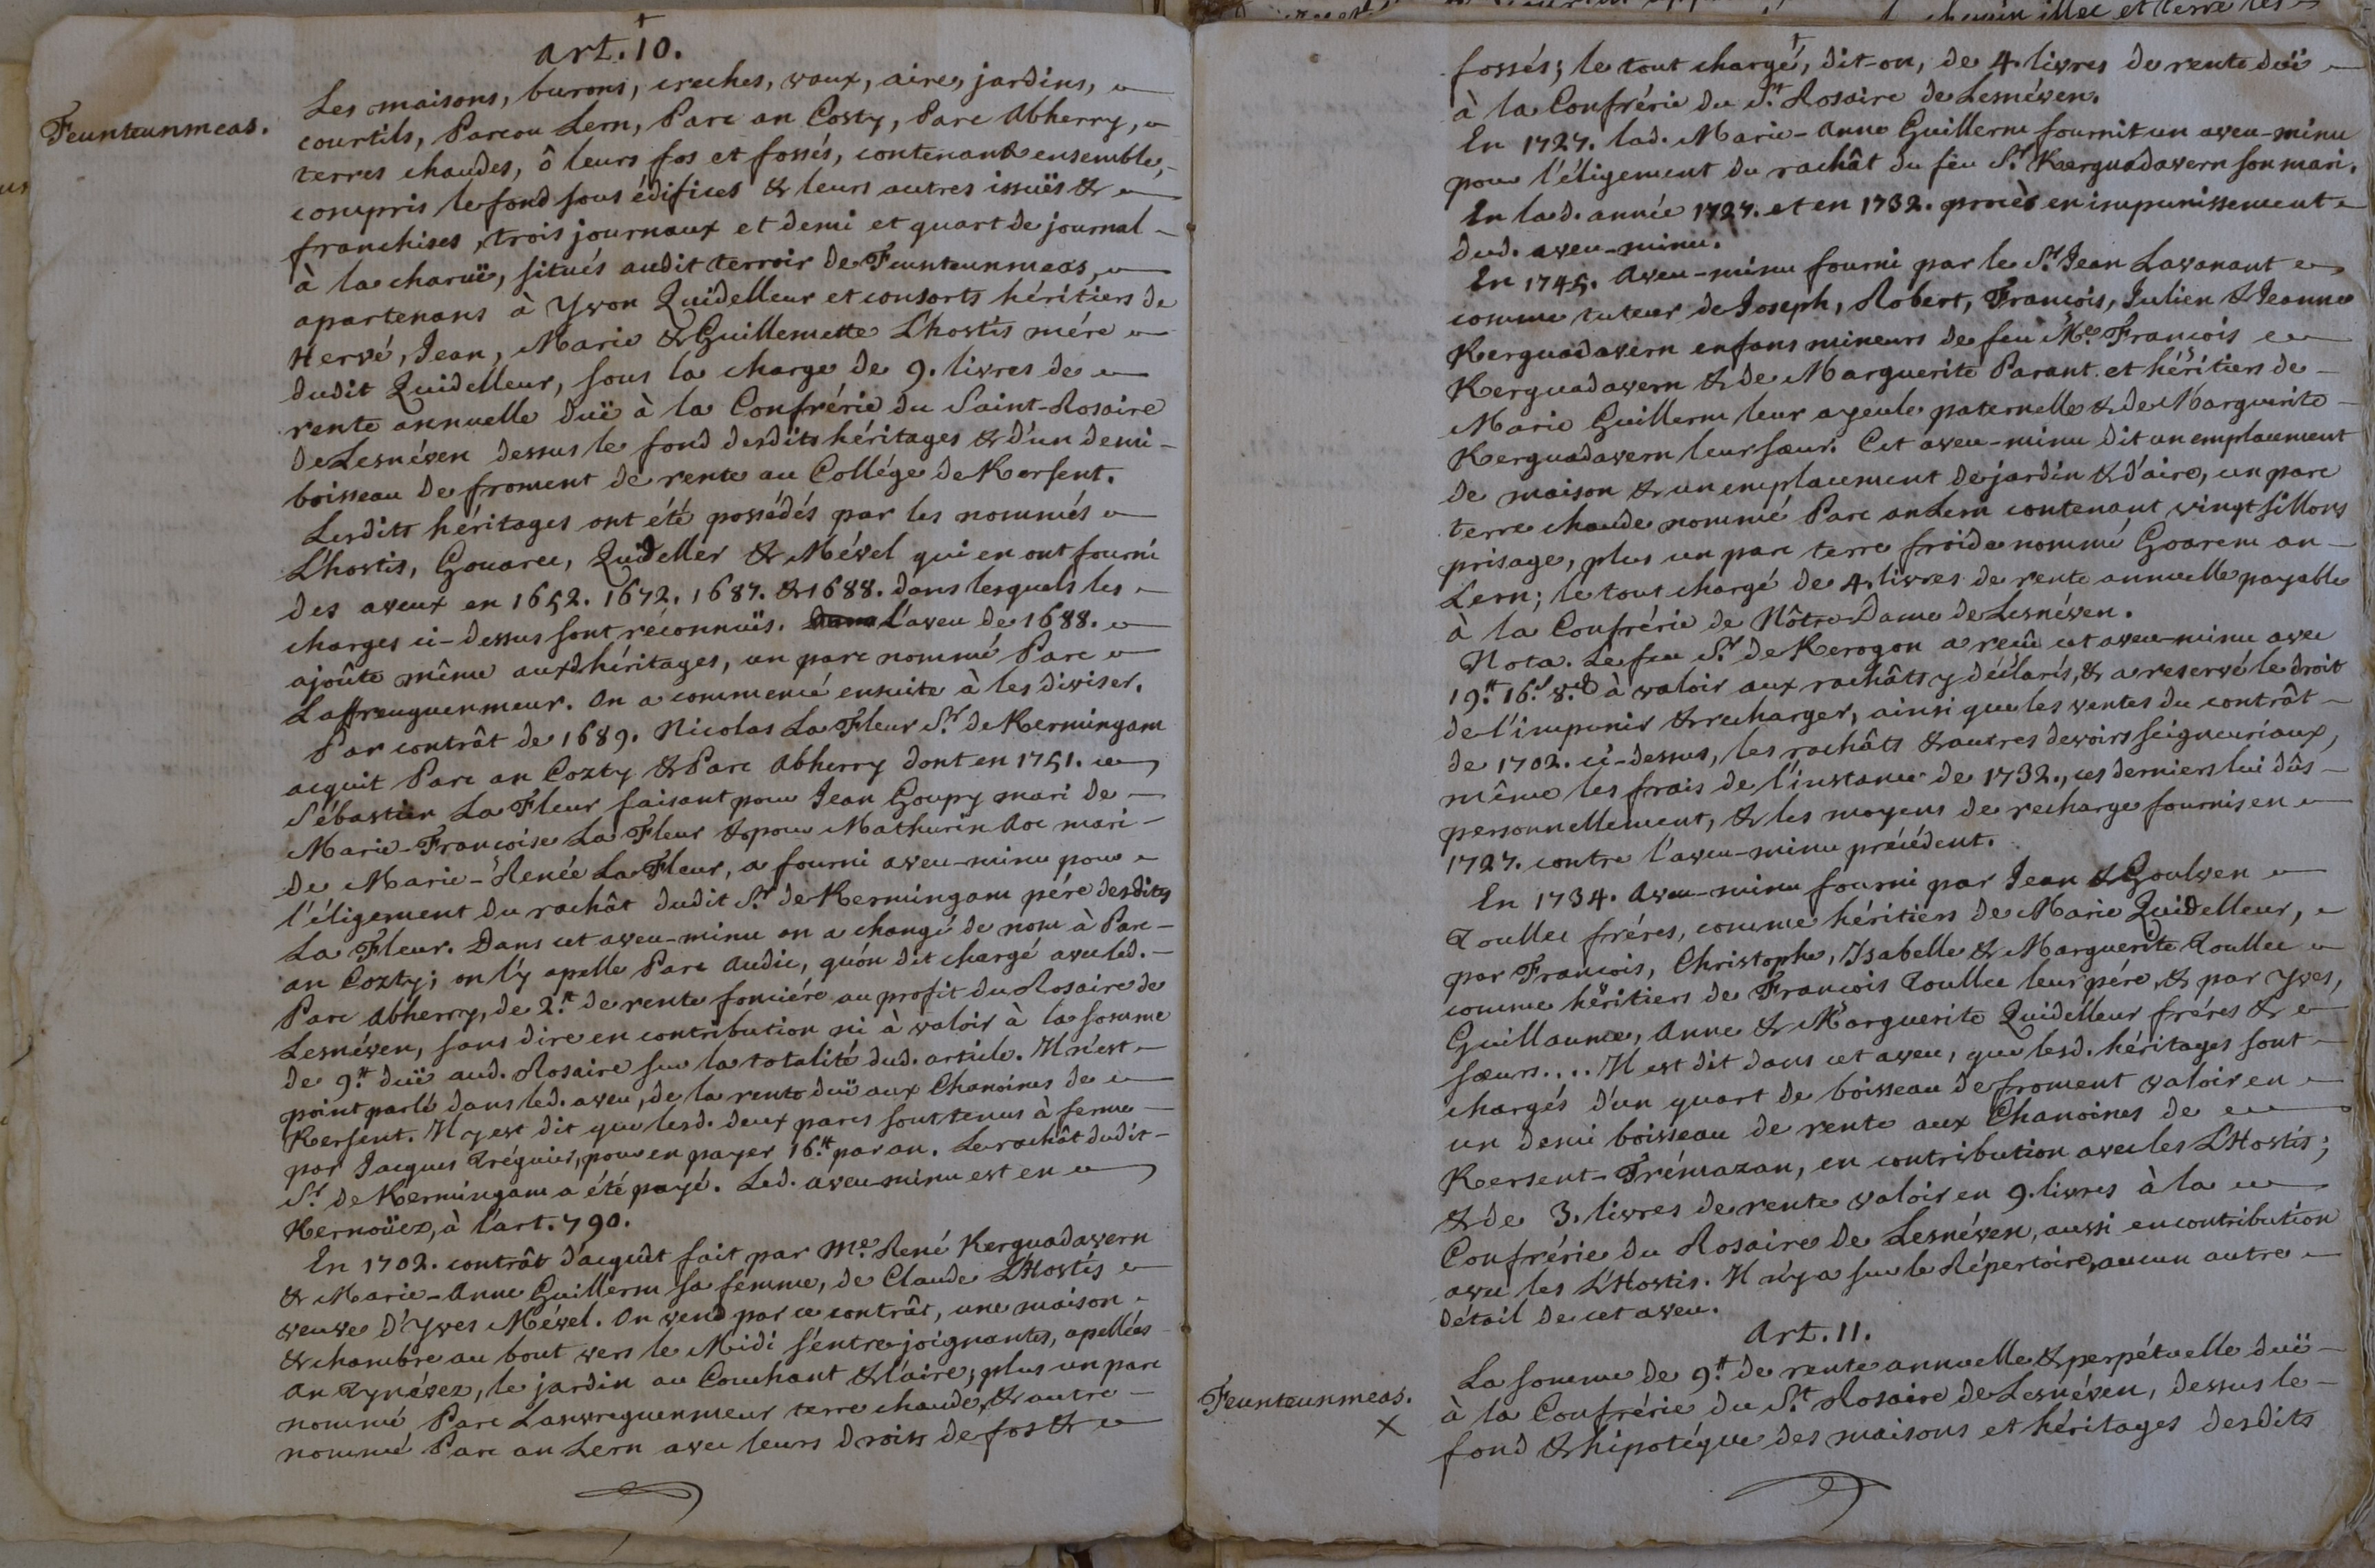 art. 10.
Feunteunmeas.
Les maisons, burons, creches, vaux, aire, jardins,
courtils, Parcou Lern, Parc an Costy, Parc Abherry,
terres chaudes, ô leurs fos et fossés, contenant ensemble,
compris le fond sous édifices & leurs autres issuës &
franchises, trois journaux et demi et quart de journal
à la charuë, situés audit terroir de Feunteunmeas,
apartenans à Yvon Quidelleur et consorts héritiers de
Hervé, Jean, Marie & Guillemette L'hostis mére
dudit Quidelleur, sous la charge de 9. livres de
rente annuelle duë à la Confrérie du Saint-Rosaire
de Lesnéven dessus le fond desdits héritages & d'un demi-
boisseau de froment de rente au Collége de Kersent.
Lesdits héritages ont été possédés par les nommés
L'hostis, Gouarec, Quideller & Mével qui en ont fourni
des aveux en 1652. 1672. 1687. & 1688. dans lesquels les
charges ci-dessus sont réconnuës. L'aveu de 1688.
ajoûte même auxd. héritages, un parc nommé Parc
Laffreuguenmeur. On a commencé ensuite à les diviser.
Par contrât de 1689. Nicolas La Fleur Sr. de Kermingam
acquit Parc an Cozty & Parc Abherry dont en 1751.
Sébastien La Fleur faisant pour Jean Goupy mari de
Marie-Françoise La Fleur & pour Mathurin Roc mari
de Marie-Renée La Fleur, a fourni aveu-minu pour
l'éligement du rachât dudit Sr. de Kermingam pére desdits
La Fleur. Dans cet aveu-minu on a changé de nom à Parc-
an Cozty; on l'y apelle Parc Audic, qu'on dit chargé avec led.
Parc Abherry, de 2.# de rente fonciére au profit du Rosaire de
Lesnéven, sans dire en contribution ni à valoir à la somme
de 9.# duë aud. Rosaire sur la totalité dud. article. Il n'est
point parlé dans led. aveu, de la rente duë aux Chanoines de
Kersent. Il y est dit que lesd. deux parcs sont tenus à ferme
par Jacques Tréguier, pour en payer 16.# par an. Le rachât dudit
Sr. de Kermingam a été payé. Led. aveu-minu est en
Kernoüez, à l'art. 790.
En 1702. contrât d'acquêt fait par Me. René Kerguadavern
& Marie-Anne Guillerm sa femme, de Claude L'Hostis
veuve d'Yves Mével. On vend par ce contrât, une maison
& chambre au bout vers le Midi s'entrejoignantes, apellées
an Tynévez, le jardin au Couchant & l'aire; plus un parc
nommé Parc Lanvreguenmeur terre chaude, & autre
nommé Parc an Lern avec leurs droits de fos &
fossés; le tout chargé, dit-on, de 4. livres de rente duë
à la Confrérie du St. Rosaire de Lesnéven.
En 1727. lad. Marie-Anne Guillerm fournit un aveu-minu
pour l'éligement du rachât du feu Sr. Kerguadavern son mari.
En lad. année 1727. et en 1732. procès en impunissement
dud. aveu-minu.
En 1745. Aveu-minu fourni par le Sr. Jean Lavanant
comme tuteur de Joseph, Robert, François, Julien & Jeanne
Kerguadavern enfans mineurs de feu Me. François
Kerguadavern & de Marguerite Parant et héritiers de
Marie Guillerm leur ayeule paternelle & de Marguerite
Kerguadavern leur sœur. Cet aveu-minu dit un emplacement
de maison & un emplacement de jardin & d'aire, un parc
terre chaude nommé Parc an Lern contenant vingt sillons
prisage, plus un parc terre froide nommé Goarem an
Lern; le tout chargé de 4. livres de rente annuelle payable
à la Confrérie de Nôtre-Dame de Lesnéven.
Nota. Le feu Sr. de Kerogon a reçu cet aveu-minu avec
19.# 16.s 8.d à valoir aux rachâts y déclarés, & a reservé le droit
de l'impunir & recharger, ainsi que les ventes du contrât
de 1702. ci-dessus, les rachâts & autres devoirs seigneuriaux,
même les frais de l'instance de 1732., ces derniers lui dûs
personnellement, & les moyens de recharge fournis en
1727. contre l'aveu-minu précédent.
En 1734. Aveu-minu fourni par Jean & Goulven
Toullec fréres, comme héritiers de Marie Quidelleur,
par François, Christophe, Isabelle & Marguerite Toullec
comme héritiers de François Toullec leur pére, & par Yves,
Guillaume, Anne & Marguerite Quidelleur fréres &
sœurs.... Il est dit dans cet aveu, que lesd. héritages sont
chargés d'un quart de boisseau de froment valoir en
un demi boisseau de rente aux Chanoines de
Kersent-Trémazan, en contribution avec les L'Hostis;
& de 3. livres de rente valoir en 9. livres à la
Confrérie du Rosaire de Lesnéven, aussi en contribution
avec les L'Hostis. Il n'y a sur le Répertoire, aucun autre
détail de cet aveu.
Art. 11.
Feunteunmeas.
X
La somme de 9.# de rente annuelle & perpétuelle duë
à la Confrérie du St. Rosaire de Lesnéven, dessus le
fond & hipotéque des maisons et héritages desdits